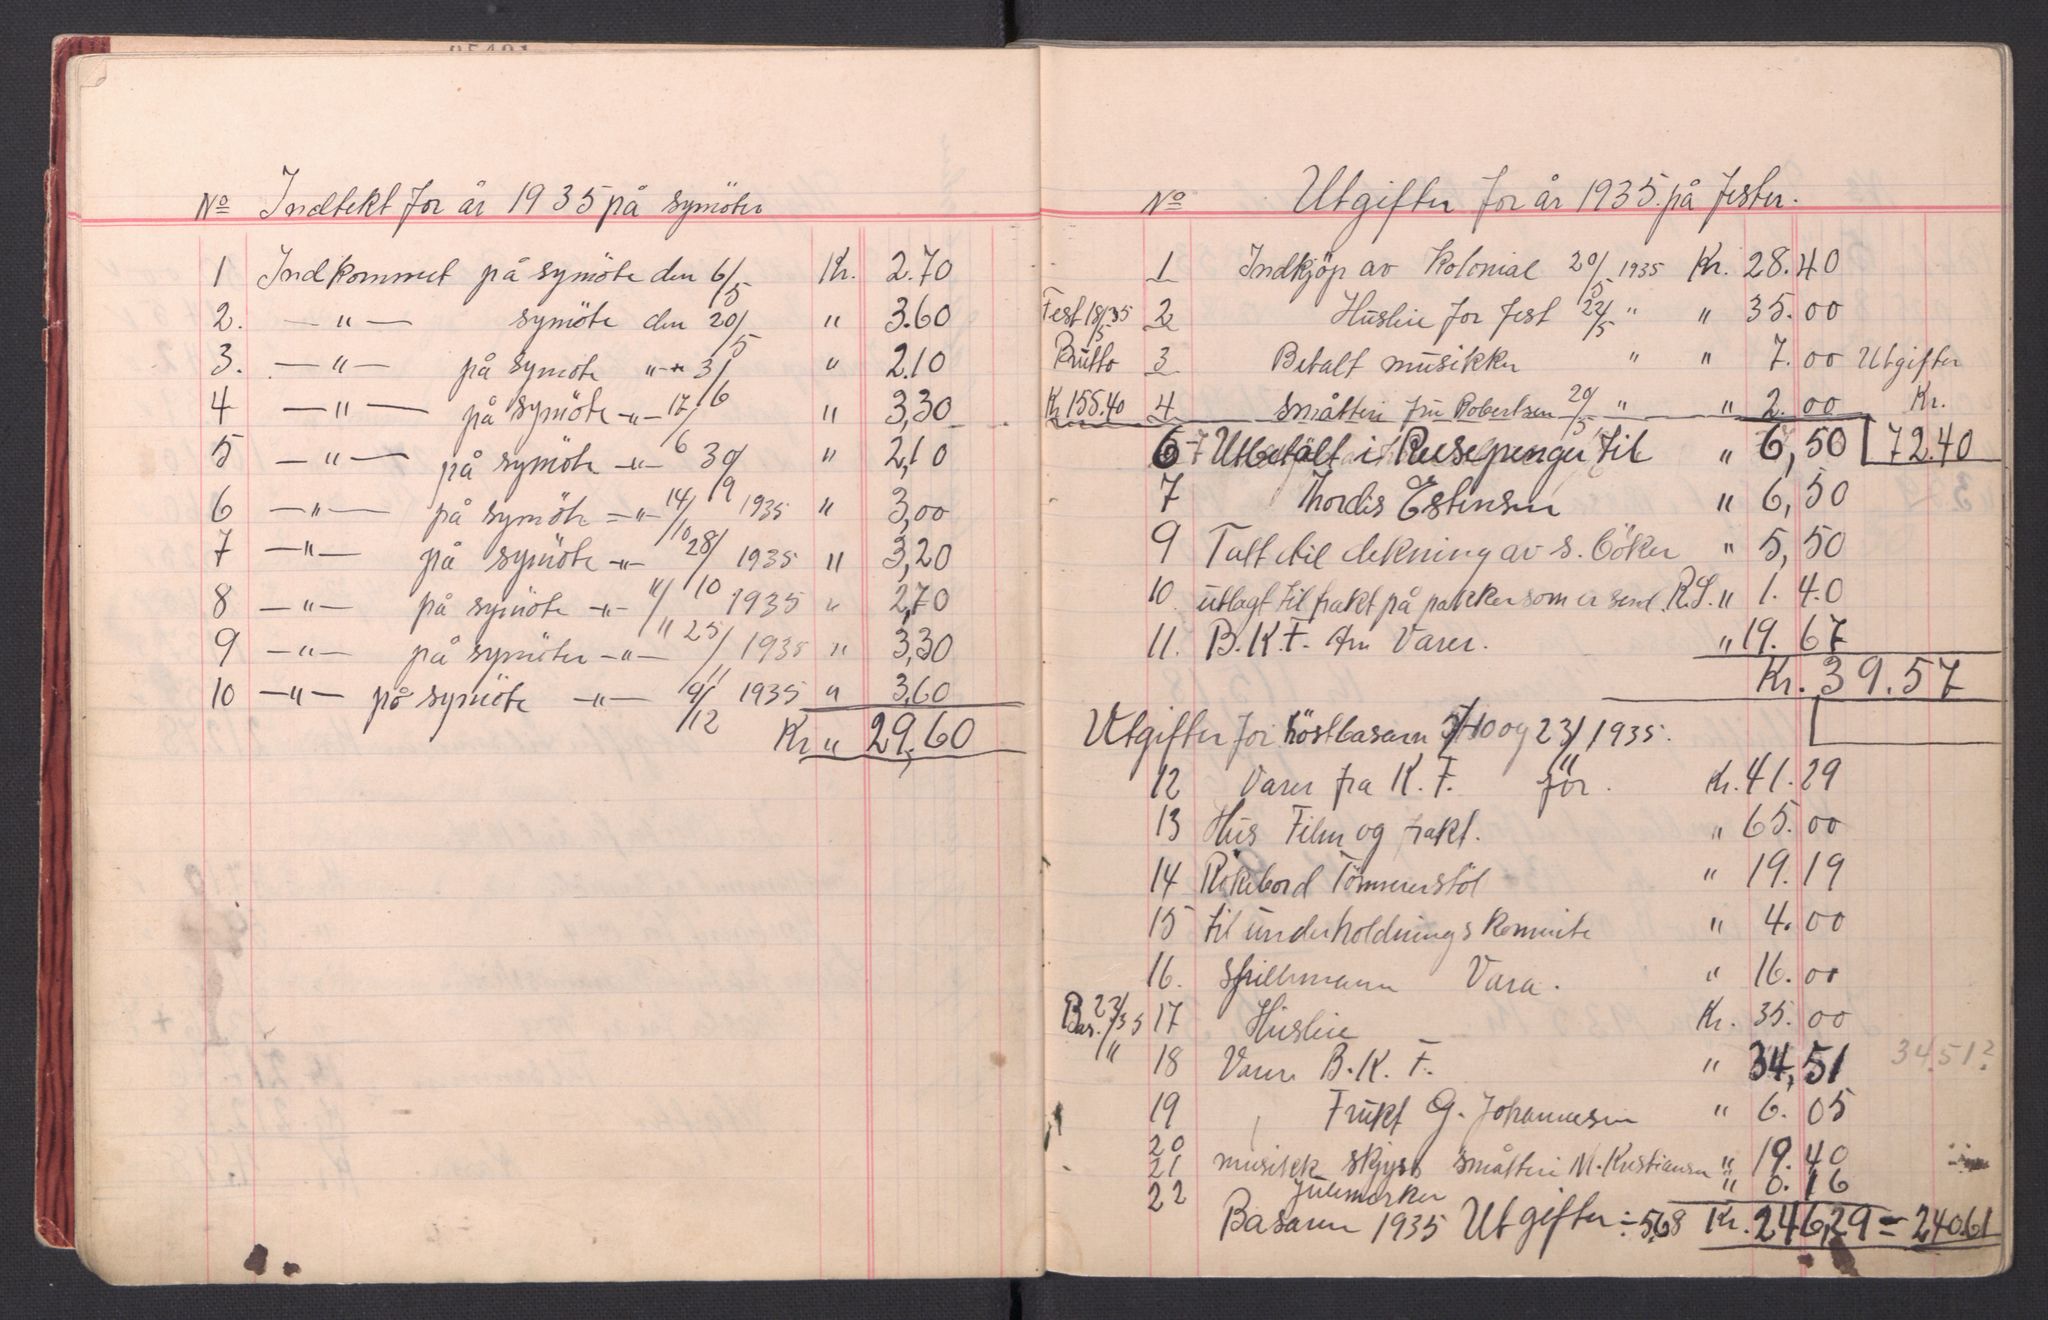 No Indtekt for år 1935 på symöter
1 Indkommet på symöte den 6/5 Kr. 2.70
2. — " — symöte den 20/5 " 3.60
3. — " — på symöte " " 3/6 " 2.10
4 — " — på symöte — " — 17/6 " 3,30
5 — " — på symöte — " — 30/9 " 2,10
6 — " — på symöte — " — 14/10 1935 " 3,00
7 — " — på symöte — " — 28/10 1935 " 3,20
8 — " — på symöte — " — 11/11 1935 " 2,70
9 — " — på symöter — " — 25/11 1935 " 3,30
10 — " — på symöte — " — 9/12 1935 " 3,60
Kr " 29,60
No Utgifter for år 1935 på fester.
1 Indkjöp av Kolonial 20/5 1935 Kr. 28.40
Fest 18/5 35 2 Husleie for fest 22/5 " " 35.00
Brutto 3 Betalt musikker " " 7.00 Utgifter
Kr 155.40 4 småtteri fru Robertsen 20/5 " " 2.00 Kr.
6 Utbetalt i Reisepenger til " 6,50 72.40
7 Thordis Estensen " 6,50
9 Tatt til dekning av s. böker " 5,50
10 utlagt til frakt på pakker som er send R.S. " 1.40
11. B.K.F. for Varer. " 19.67
Kr. 39.57
Utgifter for höstbasarn 5/10 og 23/11 1935.
12 Varer fra K.F. för. Kr. 41.29
13 Hus Film og frakt. " 65.00
14 Rökebord Tömmerstöl " 19.19
15 til underholdningskomite " 4.00
16. spillemann Vara. " 16.00
Bas. 23/11 35 17 Husleie Kr. 35.00
18 Varer B.K.F. " 34,51 34.51?
19 Frukt G. Johannesen " 6.05
20
21 musikk skjyss småtteri M. Kristiansen " 19.40
22 Julemerker " 0.16
Basarer 1935 Utgifter ÷ 5.68 Kr. 246,29 = 240.61